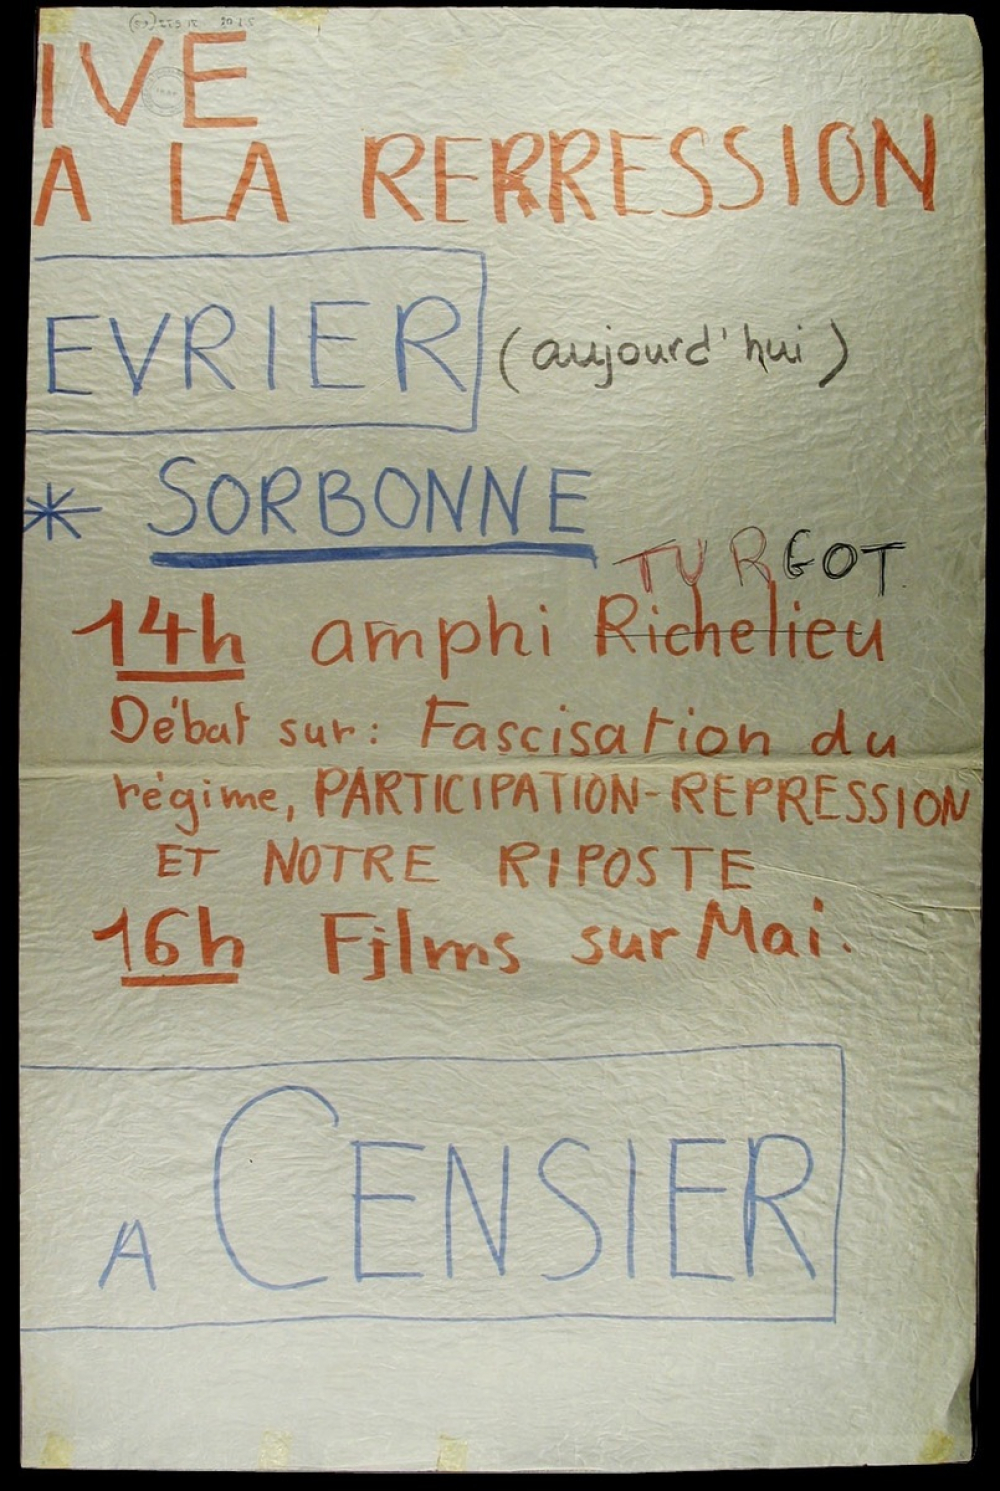 IVE
A LA REPRESSION
EVRIER (aujourd'hui)
* SORBONNE
TURGOT
14h amphi Richelieu
Débat sur: Fascisation du
régime, PARTICIPATION-REPRESSION
ET NOTRE RIPOSTE
16h Films sur Mai.
A CENSIER